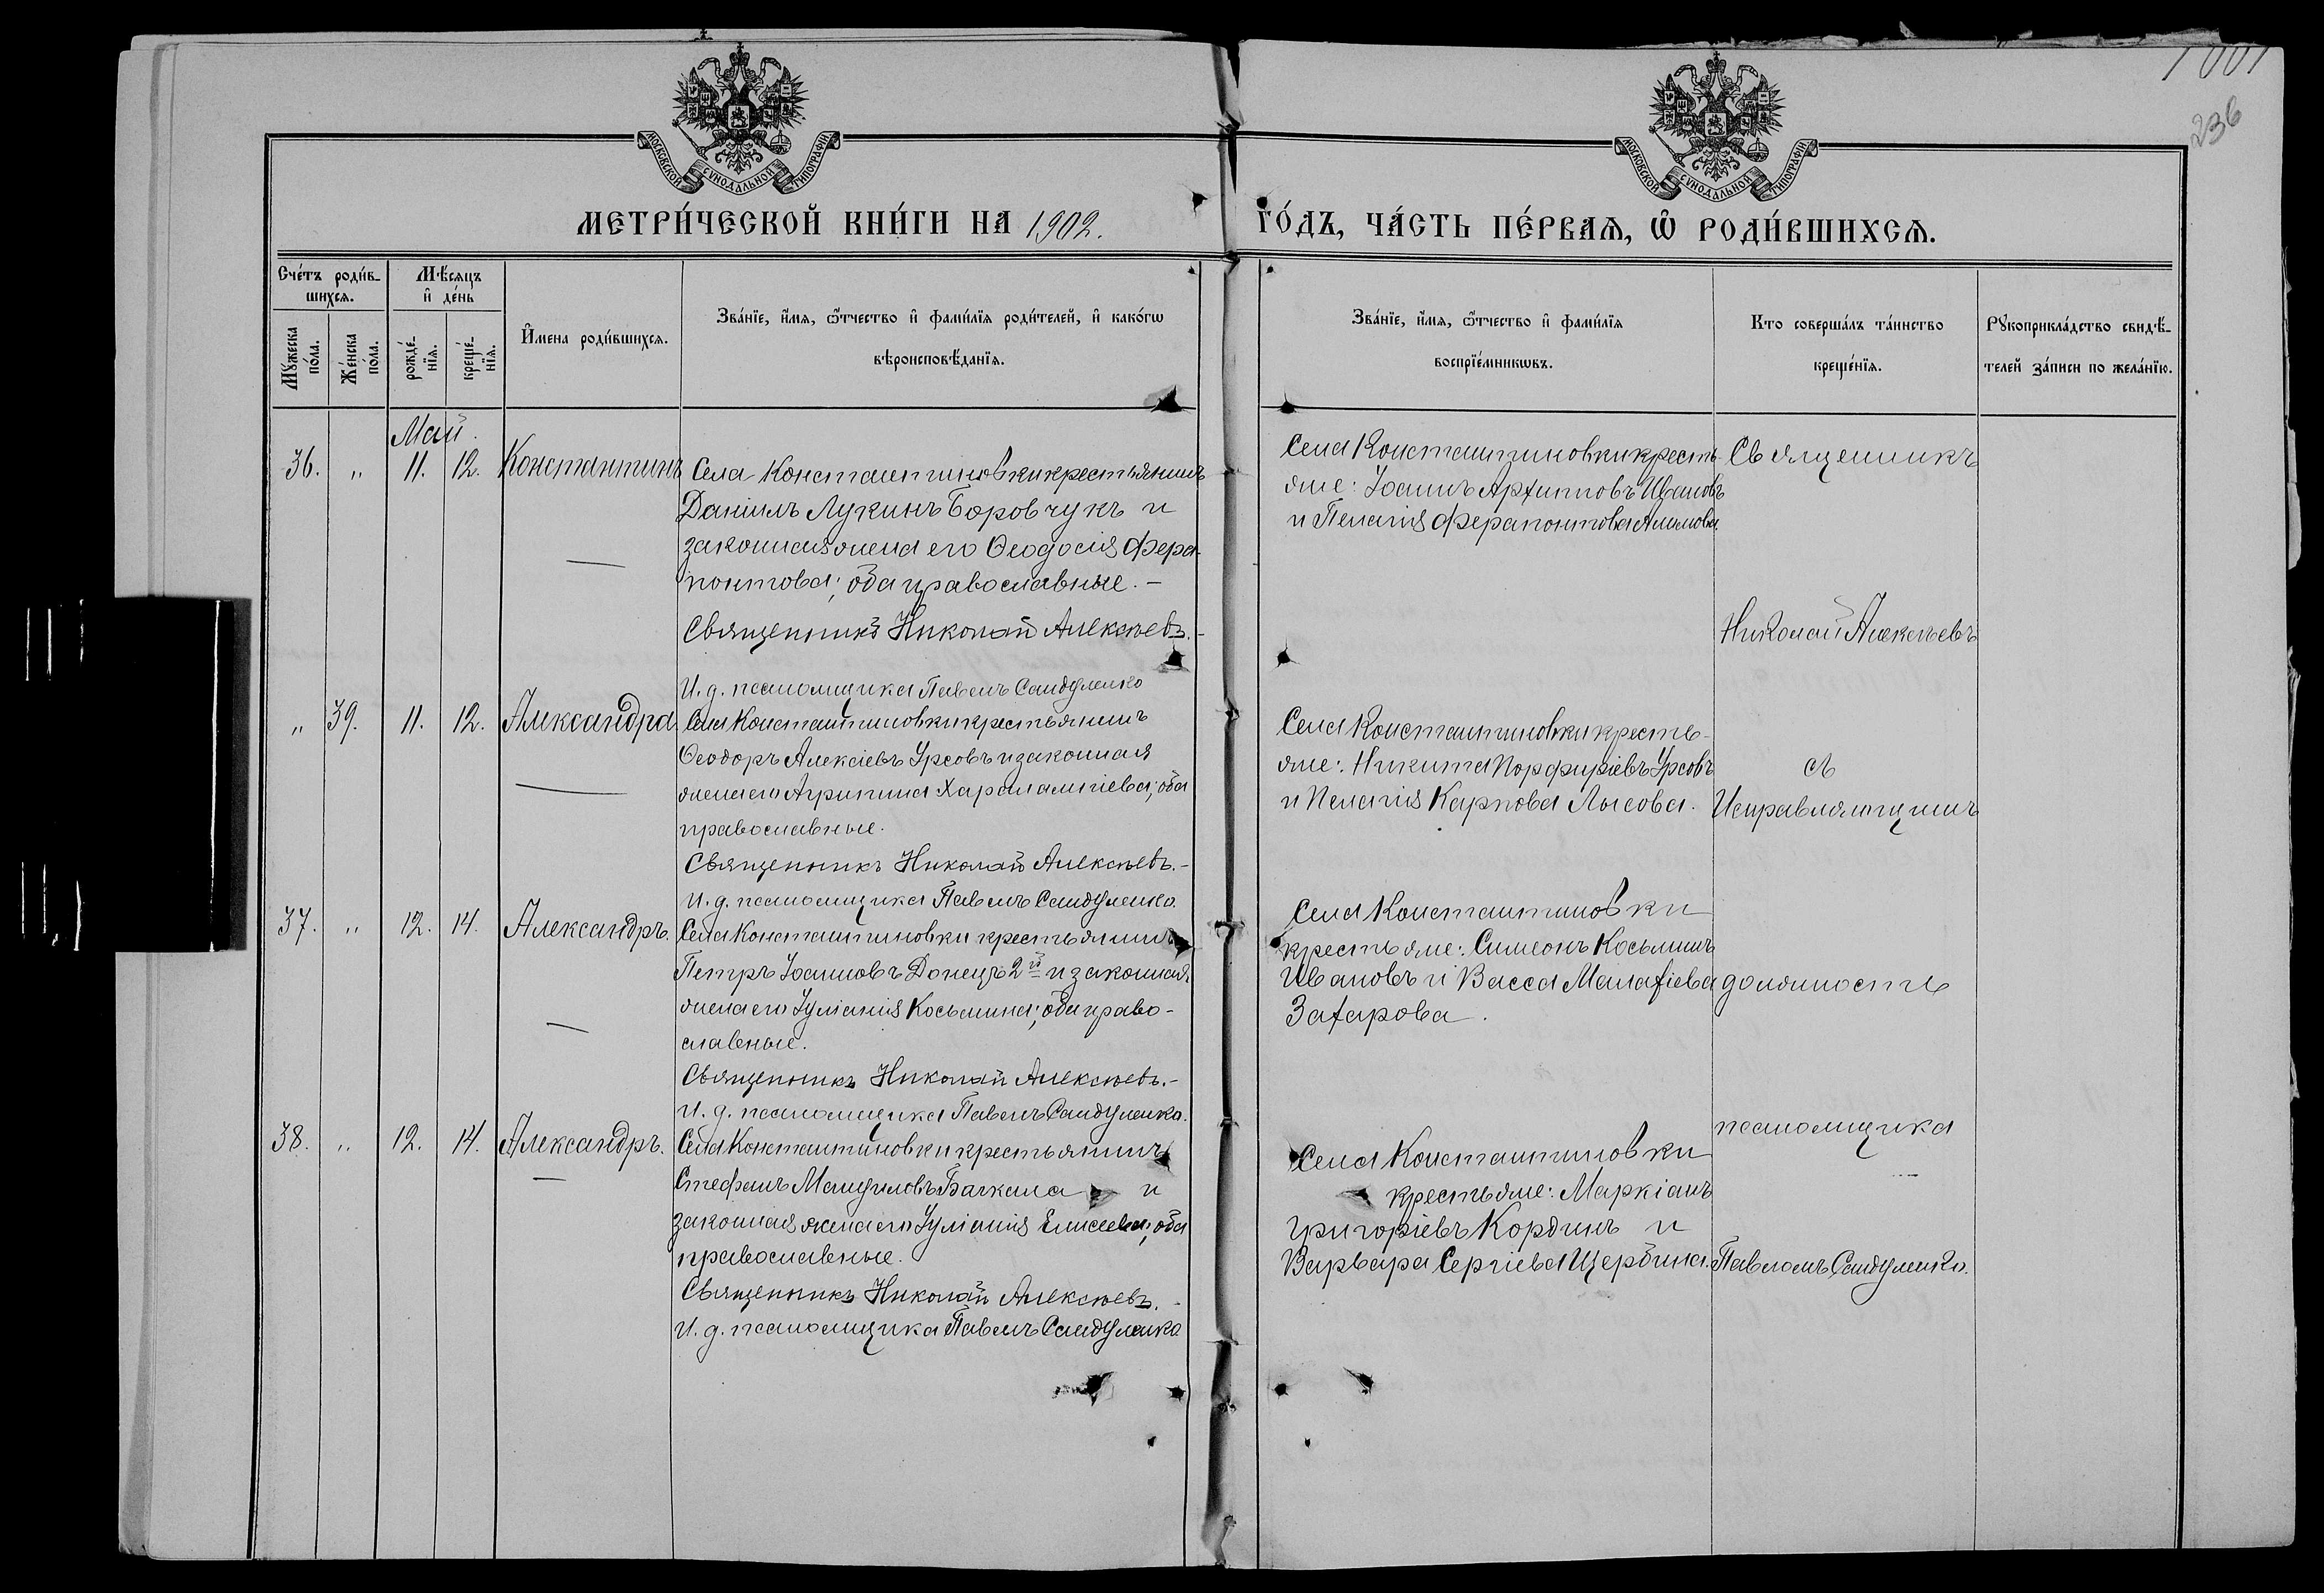 1001
236
МОСКОВСКОЙ СѴНОДАЛЬНОЙ ТИПОГРАФІИ
МОСКОВСКОЙ СѴНОДАЛЬНОЙ ТИПОГРАФІИ
МЕТРИ́ЧЕСКОЙ КНИ́ГИ НА 1902.
ГО́ДЪ, ЧА́СТЬ ПЕ́РВАѦ, Ѽ РОДИ́ВШИХСѦ.
Сче́тъ роди́в-
шихсѧ.
Мꙋжеска по́ла.
Же́нска по́ла.
Мѣ́сѧцъ
и҆ де́нь
рожде́-
нїѧ.
креще́-
нїѧ.
И҆мена роди́вшихсѧ.
Зва́нїе, и҆́мѧ, ѻ҆́тчество и҆ фами́лїѧ роди́телей, и҆ како́гѡ
вѣроисповѣ́данїѧ.
Зва́нїе, и҆́мѧ, ѻ҆́тчество и҆ фами́лїѧ
воспрїе́мникѡвъ.
Кто соверша́лъ та́инство
креще́нїѧ.
Рꙋкоприкла́дство свидѣ́-
телей за́писи по жела́нїю.
Май.
36. " 11. 12. Константинъ
Села Константиновки крестьянинъ
Даніилъ Лукинъ Боровчукъ и
законная жена его Ѳеодосія Фера-
понтова; оба православные. -
Священникъ Николай Алексѣевъ. -
И. д. псаломщика Павелъ Сандуленко
Села Константиновки кресть-
яне: Іоаннъ Архиповъ Ивановъ
и Пелагія Ферапонтова
Священникъ
Николай Алексѣевъ
" 39. 11. 12. Александра.
Села Константиновки крестьянинъ
Ѳеодоръ Алексіевъ Урсовъ и законная
жена его Агрипина Харалампіева; оба
православные.
Священникъ Николай Алексѣевъ. -
И. д. псаломщика Павелъ Сандуленко.
Села Константиновки кресть-
яне: Никита Порфиріевъ Урсовъ
и Пелагія Карпова Лысова.
съ
Исправляющимъ
37. " 12. 14. Александръ.
Села Константиновки крестьянинъ
Петръ Іоанновъ Донецъ 2й и законная
жена его Іуліанія Косьмина; оба право-
славные.
Священникъ Николай Алексѣевъ. -
И. д. псаломщика Павелъ Сандуленко.
Села Константиновки
крестьяне: Симеонъ Косьминъ
Ивановъ и Васса Малафіева
Захарова.
должность
псаломщика
38. " 12. 14. Александръ.
Села Константиновки крестьянинъ
Стефанъ Мануиловъ Баркала и
законная жена его Іуліанія Елисеева; оба
православные.
Священникъ Николай Алексѣевъ. -
И. д. псаломщика Павелъ Сандуленко
Села Константиновки
крестьяне: Маркіанъ
Григоріевъ Кординъ и
Варвара Сергіева Щербина.
Павломъ Сандуленко.